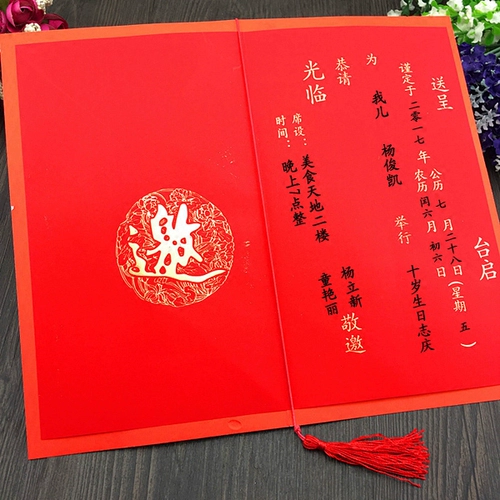 送呈
台启
谨定于二零一七年
公历七月二十八日(星期五)
农历闰六月初六日
为我儿杨俊凯举行十岁生日志庆
恭请
光临
杨立新
童艳丽
敬邀
席设:美食天地二楼
时间:晚上7点整
邀